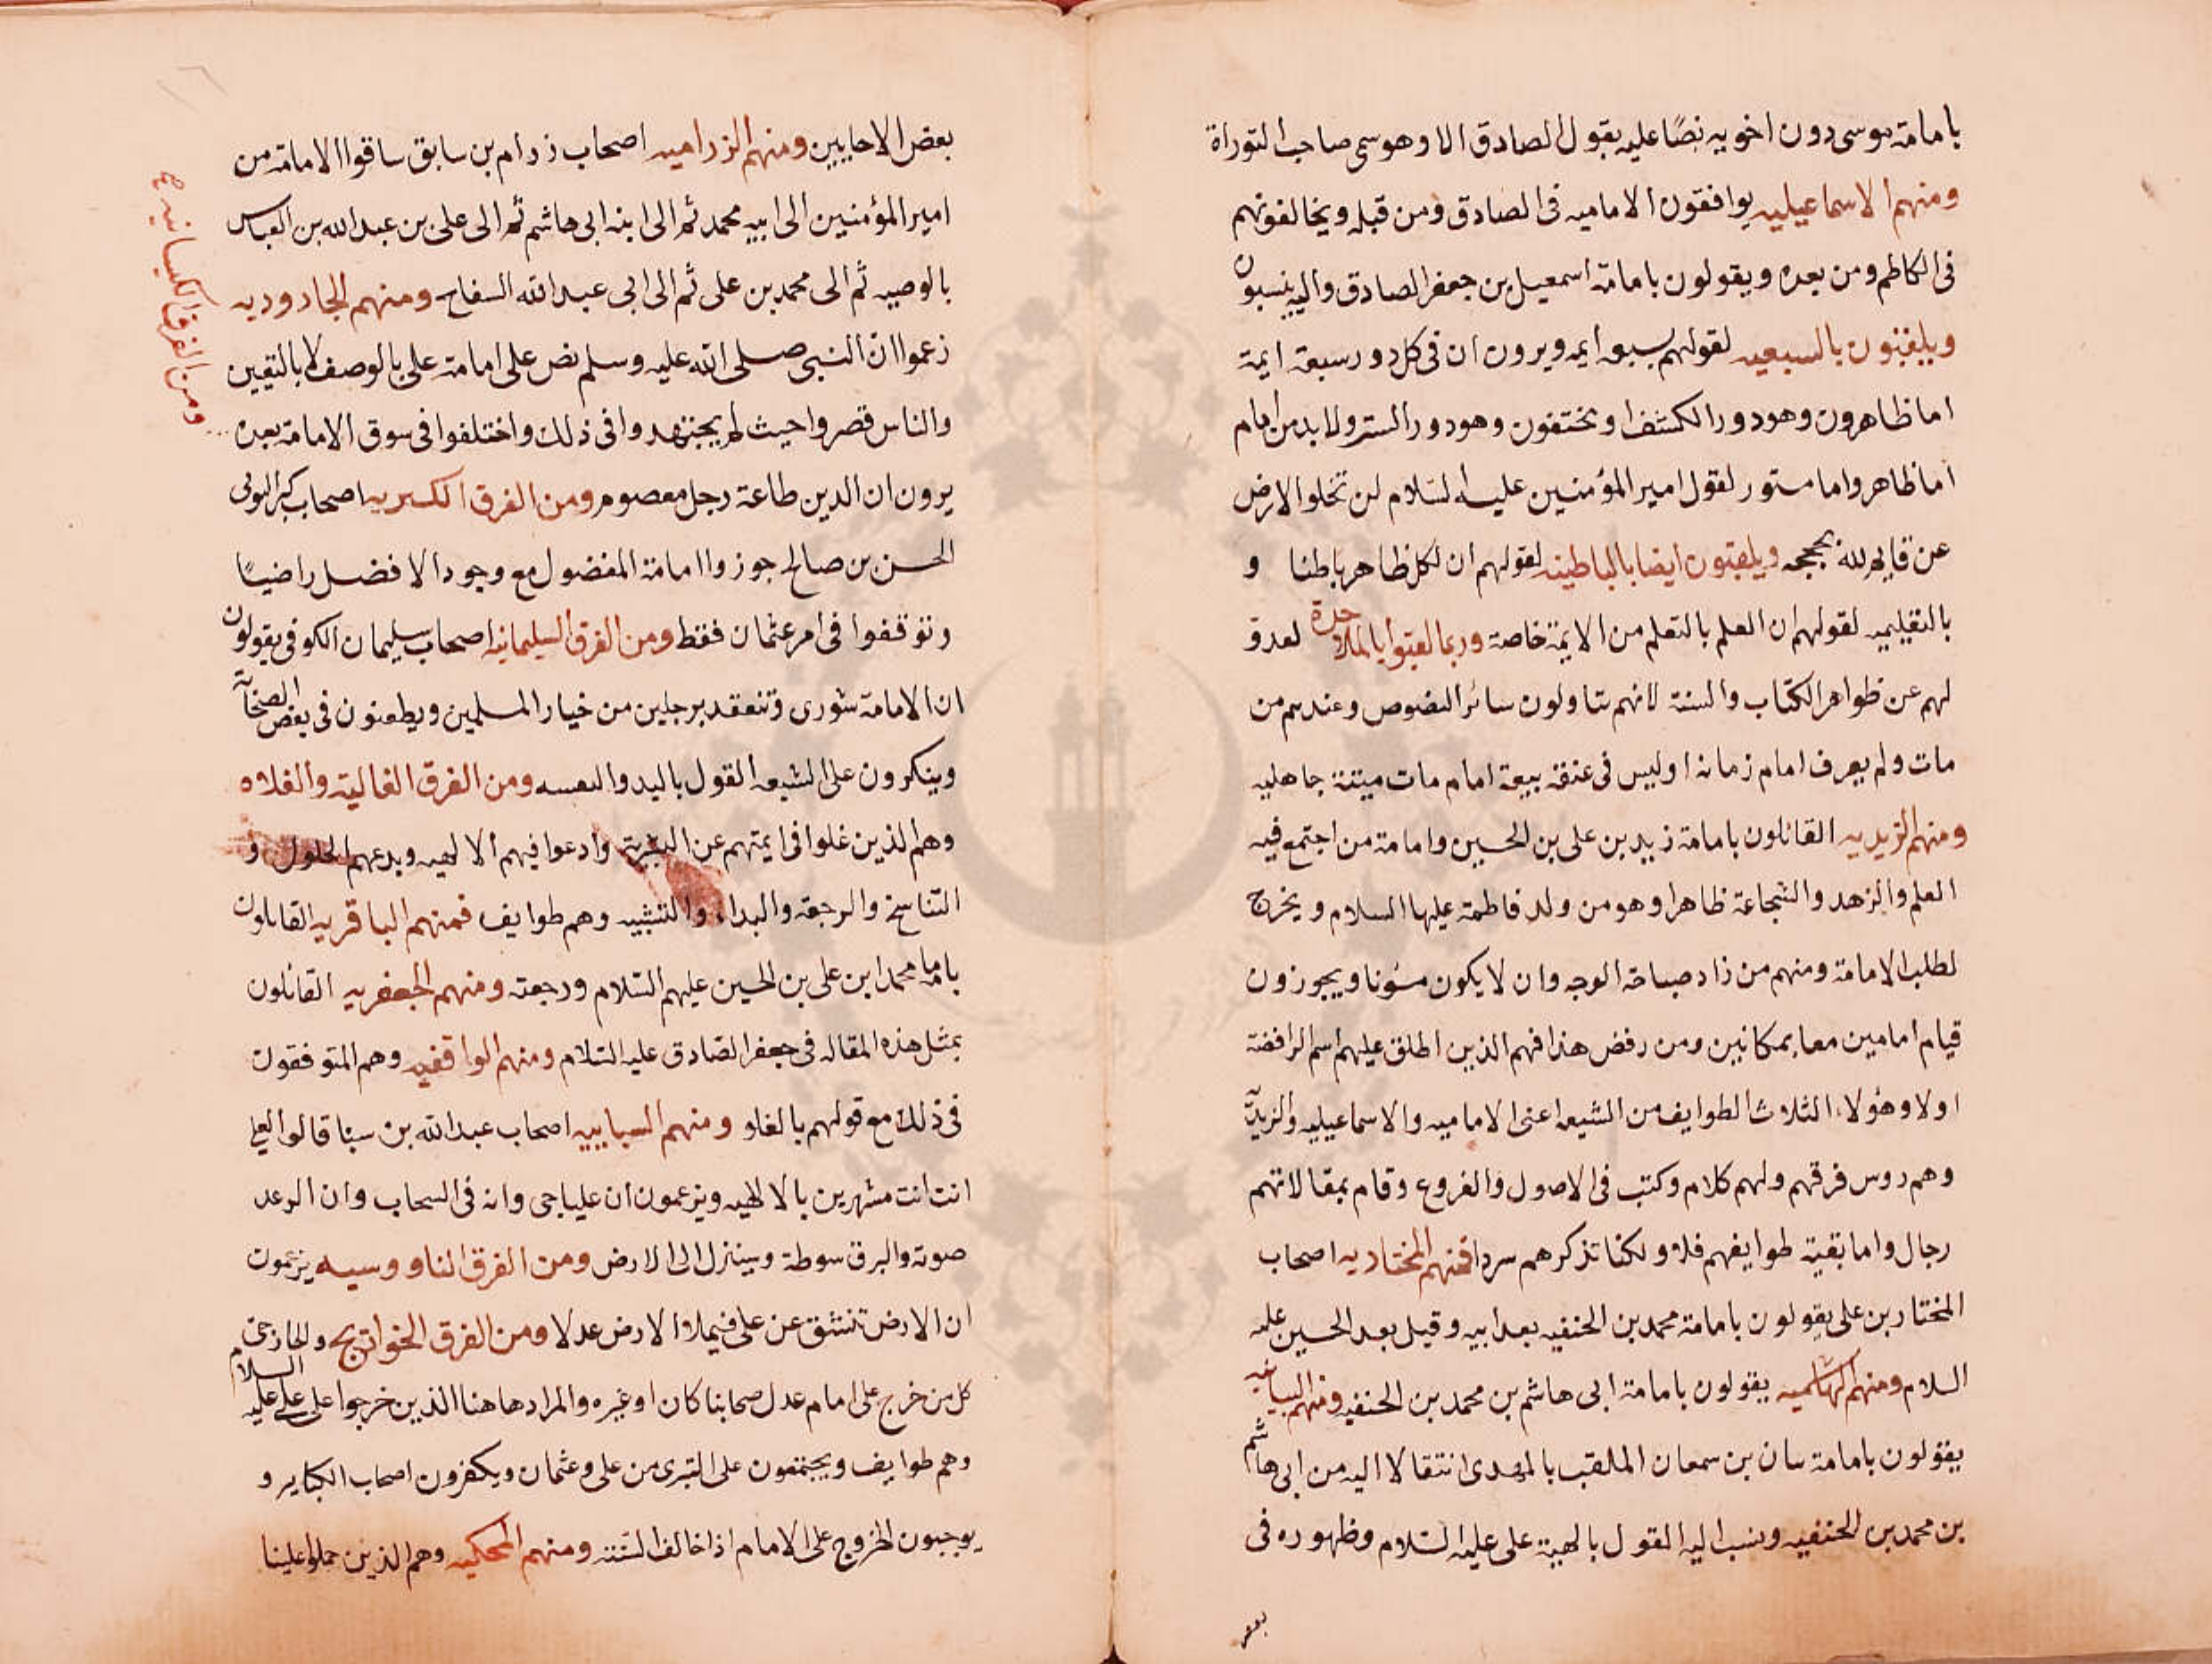 بامامة موسى دون اخويه نصًا عليه بقول الصادق الا وهو سمى صاحب التوراة
ومنهم الاسماعيليه يوافقون الاماميه فى الصادق ومن قبله ويخالفونهم
فى الكاظم ومن بعده ويقولون بامامة اسمعيل بن جعفر الصادق واليه ينسبون
ويلقبون بالسبعيه لقولهم بسبعه ايمه ويرون ان فى كل دور سبعة ايمة
اما ظاهرون وهو دور الكشف او مختفون وهو دور الستر ولا بد من امام
اما ظاهر واما مستور لقول امير المؤمنين عليه السلام لن تخلوا الارض
عن قايم لله بحججه ويلقبون ايضا بالباطنيه لقولهم ان لكل ظاهر باطنا و
بالتعليميه لقولهم ان العلم بالتعلم من الايمة خاصة وربما لقبوا بالملاحدة لعدو
لهم عن ظواهر الكتاب والسنة لانهم يتاولون سائر النصوص وعندهم من
مات ولم يعرف امام زمانه او ليس فى عنقه بيعة امام مات ميتة جاهليه
ومنهم الزيديه القائلون بامامة زيد بن على بن الحسين وامامة من اجتمع فيه
العلم والزهد والشجاعة ظاهرا وهو من ولد فاطمة عليها السلام ويخرج
لطلب الامامة ومنهم من زاد صباحة الوجه وان لا يكون مسؤنا ويجوزون
قيام امامين معا بمكانين ومن رفض هذا فهم الذين اطلق عليهم اسم الرافضة
اولا وهؤلاء الثلاث الطوايف من الشيعه اعنى الاماميه والاسماعيليه والزيديّة
وهم روس فرقهم ولهم كلام وكتب فى الاصول والفروع وقام بمقالاتهم
رجال واما بقية طوايفهم فلا ولكنا نذكرهم سردا فمنهم المختاريه اصحاب
المختار بن على يقولون بامامة محمد بن الحنفيه بعد ابيه وقيل بعد الحسين عليه
السلام ومنهم الهاشميه يقولون بامامة ابى هاشم بن محمد بن الحنفيه ومنهم البيانيه
يقولون بامامة بيان بن سمعان الملقب بالمهدى انتقالا اليه من ابى هاشم
بن محمد بن الحنفيه وينسب اليه القول بالهية على عليه السلام وظهوره فى
بعض
بعض الاحايين ومنهم الزراميه اصحاب زرام بن سابق ساقوا الامامة من
امير المؤمنين الى ابيه محمد ثم الى ابنه ابى هاشم ثم الى على بن عبد الله بن العباس
بالوصيه ثم الى محمد بن على ثم الى ابى عبد الله السفاح ومنهم الجاروديه
زعموا ان النبى صلى الله عليه وسلم نص على امامة على بالوصف لا بالتعين
والناس قصروا حيث لم يجتهدوا فى ذلك واختلفوا فى سوق الامامة بعده
ومن الفرق الكيسانيه
يرون ان الدين طاعة رجل معصوم ومن الفرق الكسريه اصحاب
الحسن بن صالح جوزوا امامة المفضول مع وجود الافضل راضيًا
وتوقفوا فى امر عثمان فقط ومن الفرق السليمانيه اصحاب سليمان الكوفى يقولون
ان الامامة شورى وتنعقد برجلين من خيار المسلمين ويطعنون فى بعض الصحابة
وينكرون على الشيعه القول باليد والتقسه ومن الفرق الغالية والغلاه
وهم الذين غلوا فى ايمتهم عن البشرية وادعوا فيهم الالهيه وبدعهم الحلول و
التناسخ والرجعة والبداء والتشبيه وهم طوايف فمنهم الباقريه القايلون
بامامة محمد ابن على بن الحسين عليهم السّلام ورجعته ومنهم الجعفريه القائلون
بمثل هذه المقاله فى جعفر الصادق عليه السلام ومنهم الواقفيه وهم المتوقفون
فى ذلك مع قولهم بالغلو ومنهم السباييه اصحاب عبد الله بن سبئا قالوا لعلى
انت انت مشهرين بالالهيه ويزعمون ان عليا حى وانه فى السحاب وان الرعد
صوته والبرق سوطة وسينزل الى الارض ومن الفرق الناووسيه يزعمون
ان الارض تنشق عن على فيملاء الارض عدلا ومن الفرق الخوارج والخارجى
كل من خرج على امام عدل صحابنا كان او غيره والمراد هاهنا الذين خرجوا على على عليه السلام
وهم طوايف ويجتمعون على التبرى من على وعثمان ويكفرون اصحاب الكباير و
يوجبون الخروج على الامام اذا خالف السّنة ومنهم المحكميه وهم الذين حملوا علينا